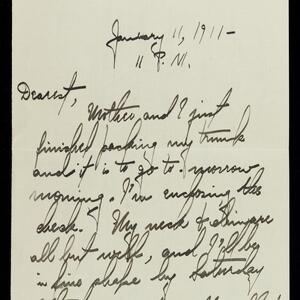 January 11, 1911-
11 P.M.
Dearest,
Mother and I just
finished packing my trunk
and it is to go to-morrow
morning. I'm enclosing the
check. My neck & chin are
all but well, and I'll be
in fine shape by Saturday